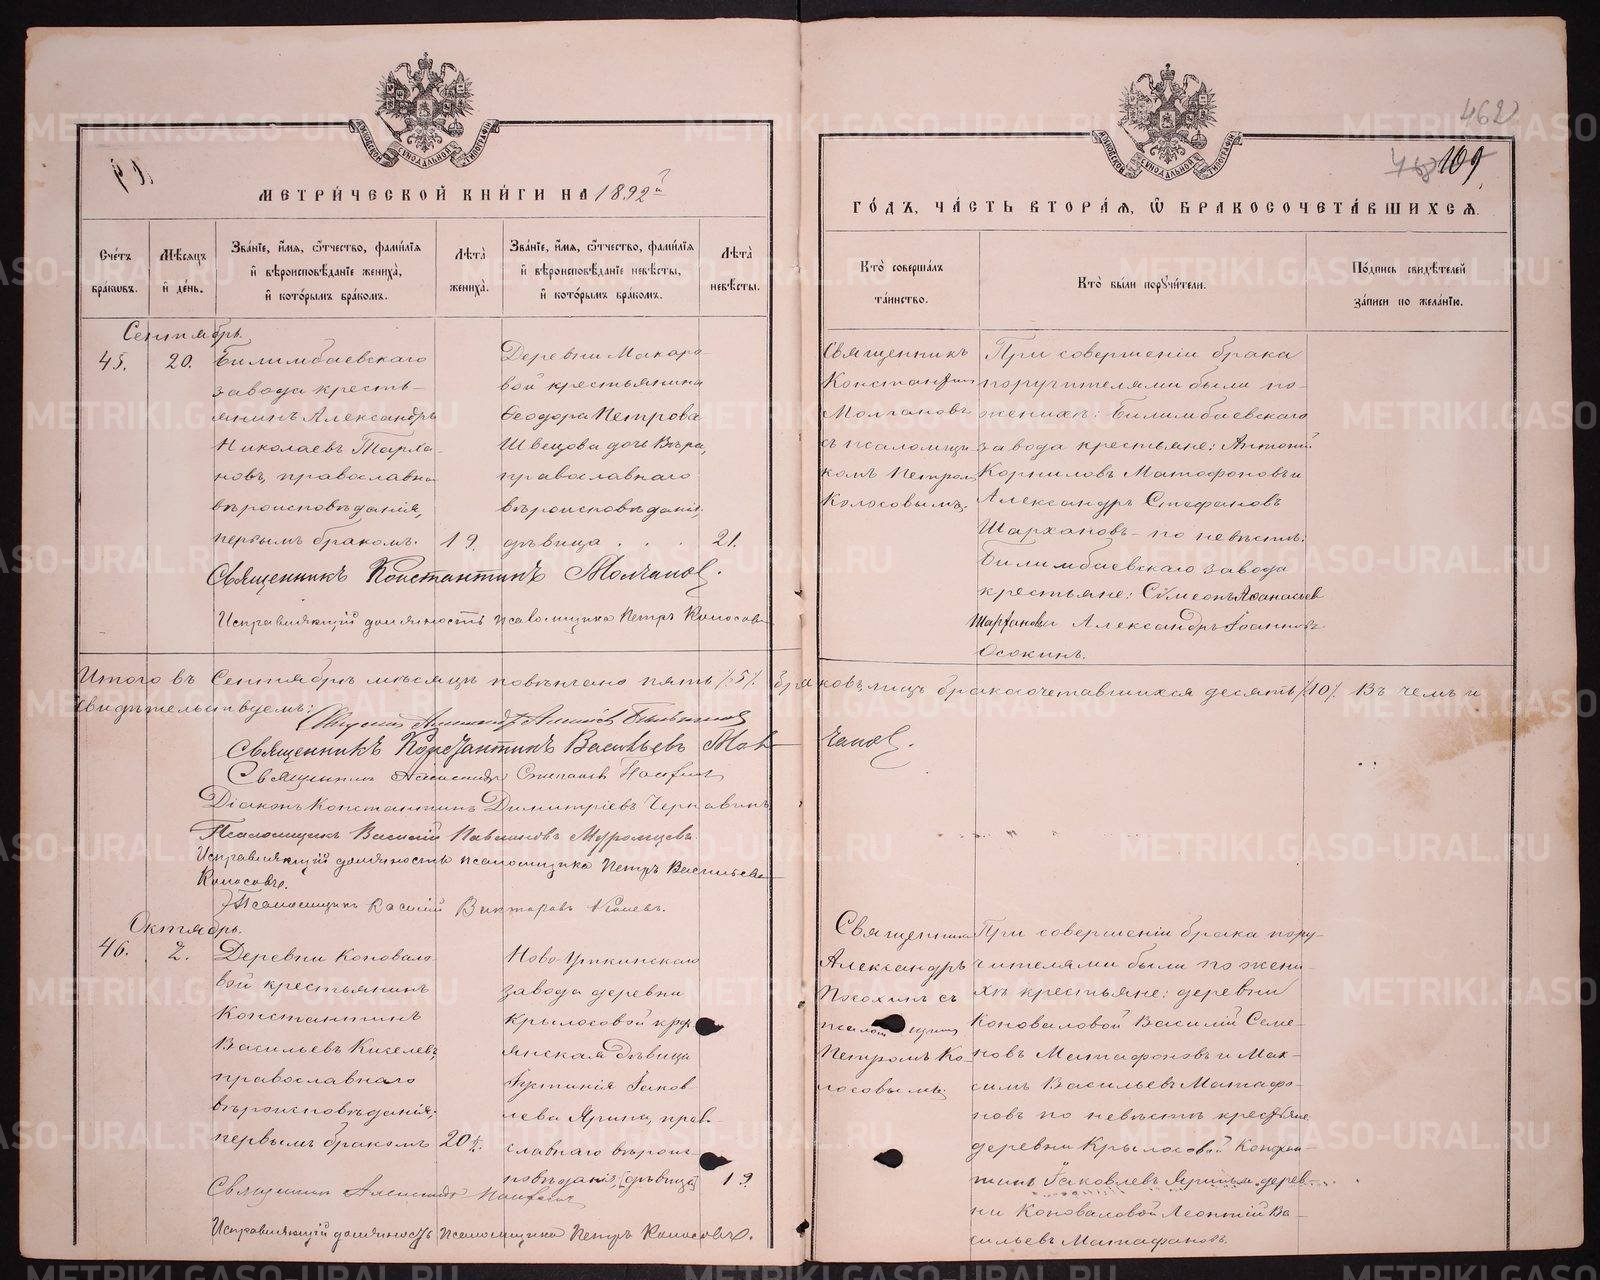 МЕТРИ́ЧЕСКОЙ КНИ́ГИ НА 1892й
Сче́тъ бра́кωвъ.
Мѣ́сяцъ и҆ де́нь.
Зва́нїе, и҆́мя, ѻ҆́тчество, фами́лїя и҆ вѣроисповѣ́данїе жениха̀, и҆ кото́рымъ бра́комъ.
Лѣ́та жениха̀.
Зва́нїе, и҆́мя, ѻ҆́тчество, фами́лїя и҆ вѣроисповѣ́данїе невѣ́сты, и҆ кото́рымъ бра́комъ.
Лѣ́та невѣ́сты.
Сентябрь
45.
20.
Билимбаевскаго
завода кресть-
янинъ Александръ
Николаевъ
новъ, православна
вѣроисповѣданія,
первымъ бракомъ.
19.
Деревни Макаро-
вой крестьянина
Ѳеодора Петрова
Швецова дочь Вѣра,
православнаго
вѣроисповѣданія,
дѣвица . . .
21.
Священникъ Константинъ Молчановъ.
Исправляющій должность псаломщика Петръ Колосовъ
Итого въ Сентябрѣ мѣсяцѣ повѣнчано пять /5/ браковъ, лицъ бракосочетавшихся десять /10/. Въ чемъ и
свидѣтельствуемъ:
Священникъ Константинъ Васильевъ Мол-
чановъ.
Священникъ Александръ
Діаконъ Константинъ Димитріевъ Чернавинъ
Псаломщикъ Василій Павлиновъ Муромцевъ.
Исправляющій должность псаломщика Петръ Васильевъ
Колосовъ.
Псаломщикъ Василій Викторовъ
Октябрь.
46.
2.
Деревни Коновало-
вой крестьянинъ
Константинъ
Васильевъ Киселевъ,
православнаго
вѣроисповѣданія,
первымъ бракомъ
20
Новоуткинскаго
завода деревни
Крылосовой
янская дѣвица
Іустинія Іаков-
лева Ярина, прав-
славнаго вѣроис-
повѣданія, [дѣвица]
19
Священникъ Александръ
Исправляющій должность псаломщика Петръ Колосовъ.
462
109
ГО́ДЪ, ЧА́СТЬ ВТОРА́Я, Ѽ БРАКОСОЧЕТА́ВШИХСЯ.
Кто̀ соверша́лъ та́инство.
Кто̀ бы́ли поручи́тели.
По́дпись свидѣ́телей за́писи по жела́нїю.
Священникъ
Константинъ
Молчановъ
съ псаломщи-
комъ Петромъ
Колосовымъ.
При совершеніи брака
поручителями были по
женихѣ: Билимбаевскаго
завода крестьяне: Антоній
Корниловъ Матафоновъ и
Александръ Стефановъ
Шархановъ – по невѣстѣ:
Билимбаевскаго завода
крестьяне: Сѵмеонъ Аѳанасьевъ
Александръ Іоанновъ
Осокинъ.
Священникъ
Александръ
съ
псаломщик
Петромъ Ко-
лосовымъ.
При совершеніи брака пору-
чителями были по жени-
хѣ крестьяне: деревни
Коноваловой Василій Семе-
новъ Матафоновъ и Мак-
симъ Васильевъ Матафо-
новъ по невѣстѣ крестьяне
деревни Крылосовой
Іаковлевъ Яринъ и дерев-
ни Коноваловой Леонтій Ва-
сильевъ Матафоновъ.
METRIKI.GASO-URAL.RU